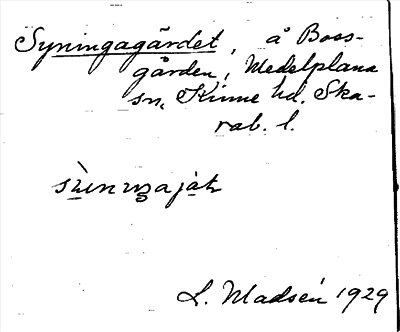 Syningagärdet, å Boss-
gården, Medelplana
sn, Kinne hd. Ska-
rab. l.
L. Madsén 1929